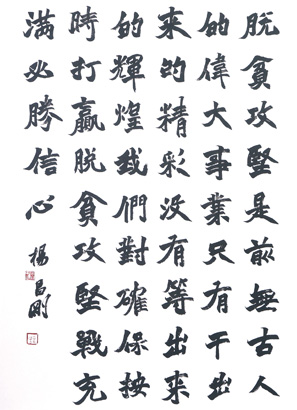 脱貧攻堅是前無古人
的偉大事業只有干出
来的精彩没有等出来
的輝煌我們對確保按
時打贏脱貧攻堅戰充
滿必勝信心 楊昌剛